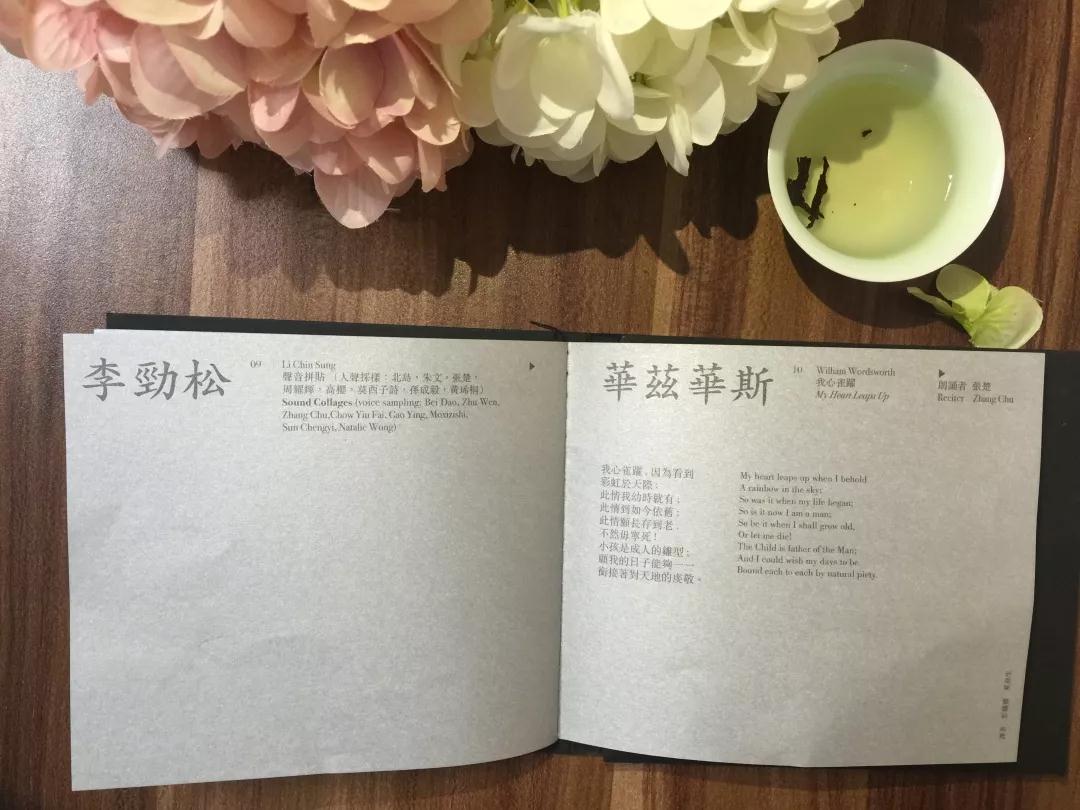 李勁松
09
Li Chin Sung
聲音拼貼 （人聲採樣：北島，朱文，張楚，
周耀輝，高櫻，莫西子詩，孫成毅，黃琋桐）
Sound Collages (voice sampling: Bei Dao, Zhu Wen,
Zhang Chu,Chow Yiu Fai, Gao Ying, Moxizishi,
Sun Chengyi, Natalie Wong)
華茲華斯
10
William Wordsworth
我心雀躍
My Heart Leaps Up
朗誦者 張楚
Reciter Zhang Chu
我心雀躍，因為看到
彩虹於天際：
此情我幼時就有；
此情到如今依舊；
此情願長存到老，
不然毋寧死！
小孩是成人的雛型；
願我的日子能夠一一
銜接著對天地的虔敬。
My heart leaps up when I behold
A rainbow in the sky:
So was it when my life began;
So is it now I am a man;
So be it when I shall grow old,
Or let me die!
The Child is father of the Man;
And I could wish my days to be
Bound each to each by natural piety.